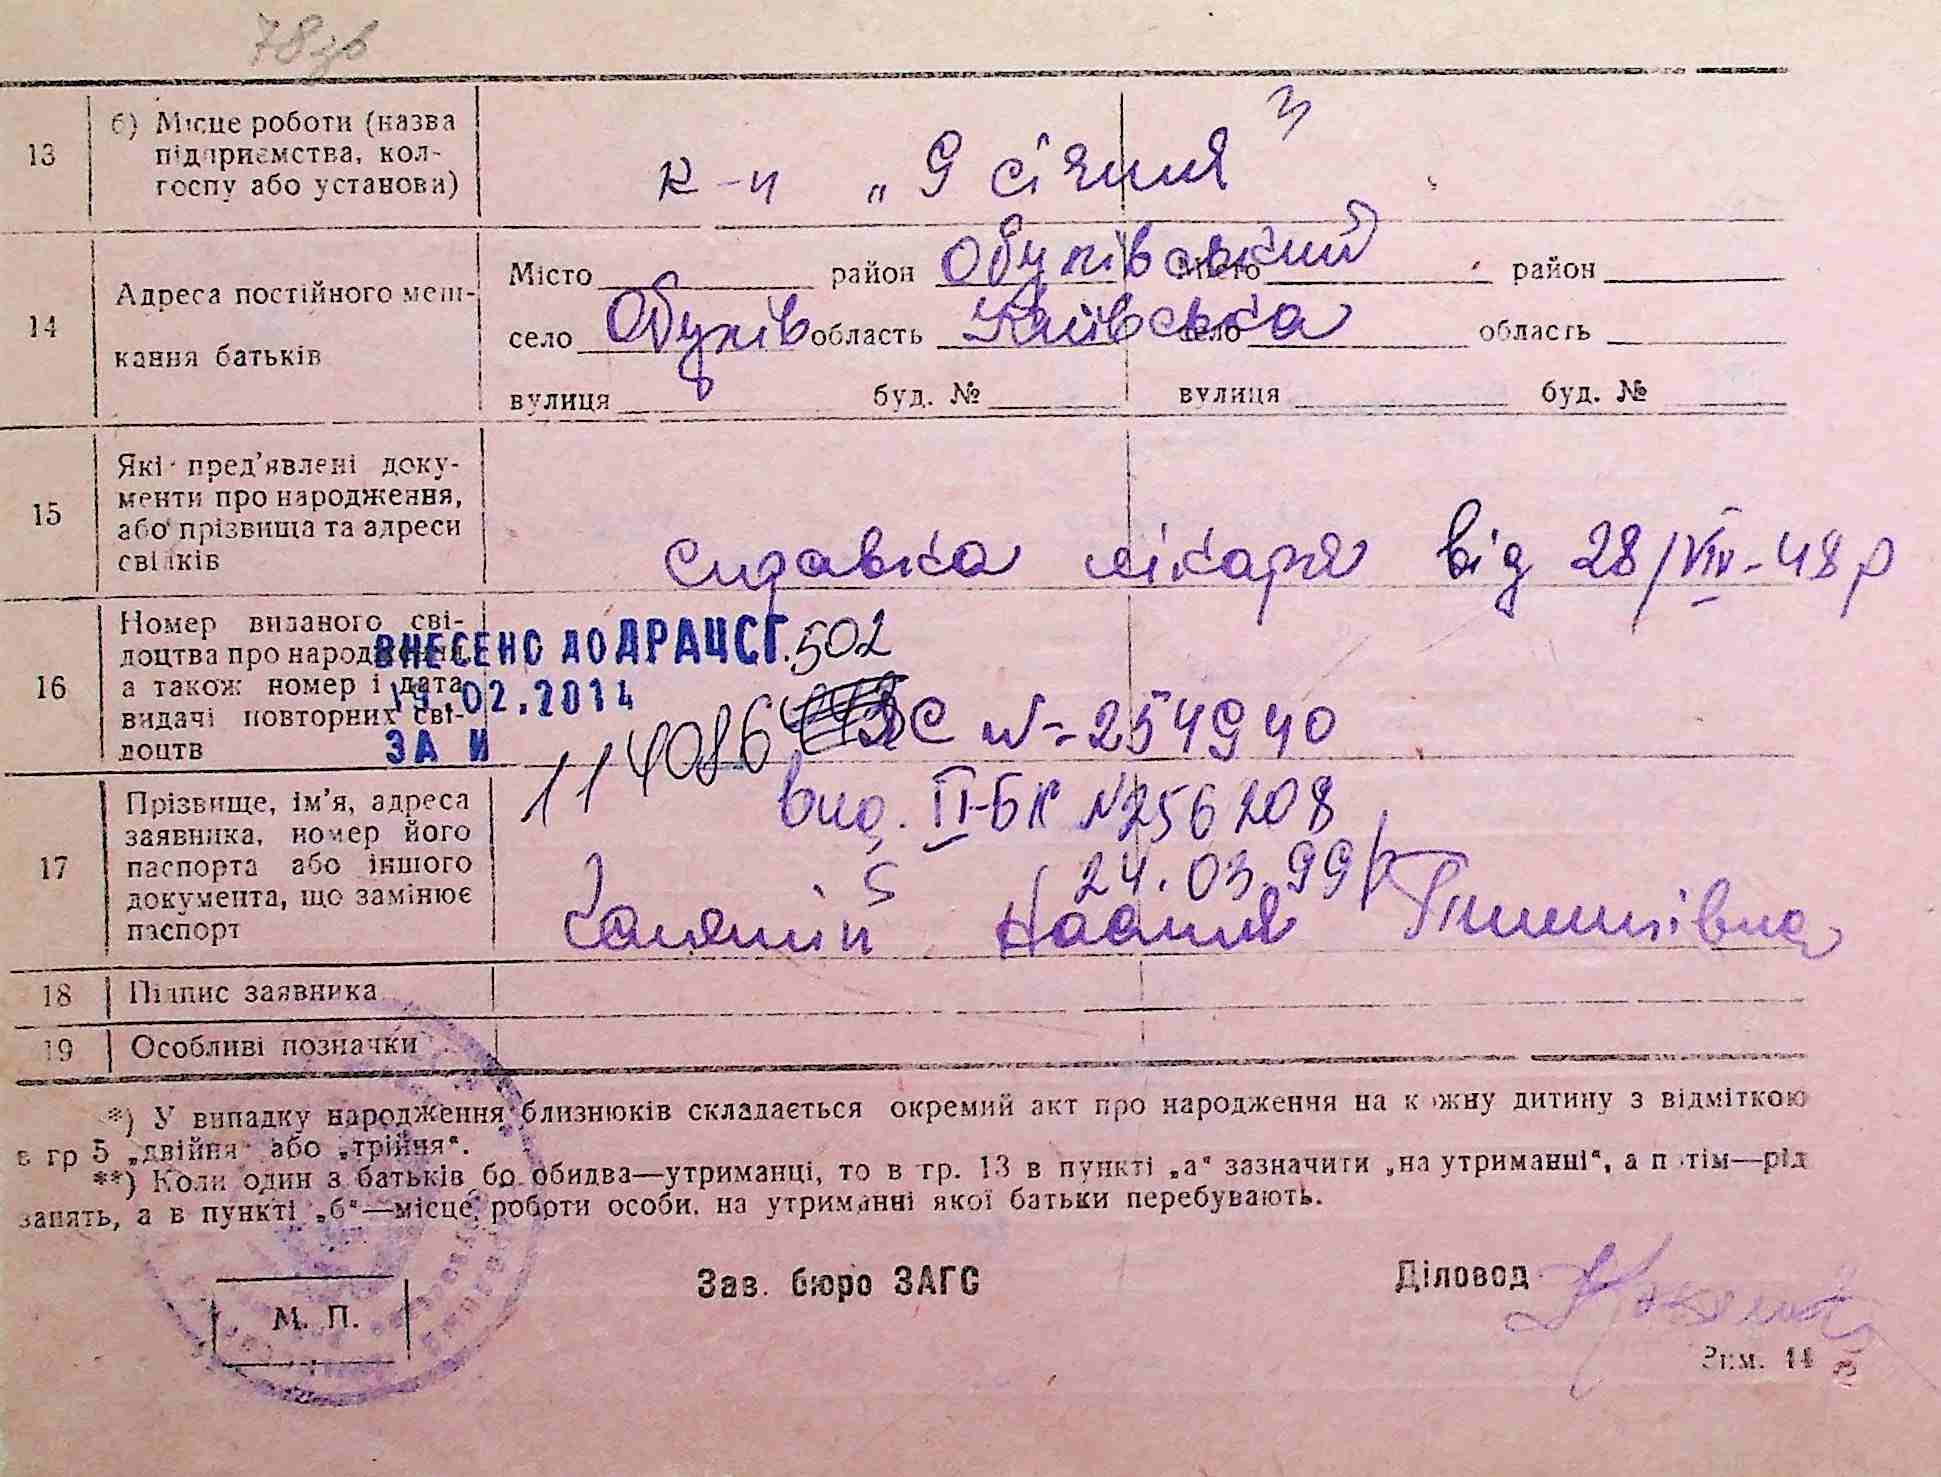 78зв
13 б) Місце роботи (назва підприємства, колгоспу або установи)
к-п „9 січня"
14 Адреса постійного мешкання батьків
Місто район Обухівський Місто район
село Обухів область Київська село область
вулиця буд. № вулиця буд. №
15 Які пред'явлені документи про народження, або прізвища та адреси свідків
справка лікаря від 28/VIII-48 р
16 Номер виданого свідоцтва про народження, а також номер і дата видачі повторних свідоцтв
ВНЕСЕНО ДО ДРАЦСГ. 502
19.02.2014
ЗА И 114086
ЯС № 254940
вид. II-БК №256208
24.03.99р
17 Прізвище, ім'я, адреса заявника, номер його паспорта або іншого документа, що замінює паспорт
18 Підпис заявника
19 Особливі позначки
*) У випадку народження близнюків складається окремий акт про народження на кожну дитину з відміткою
в гр 5 „двійня" або „трійня".
**) Коли один з батьків бо обидва—утриманці, то в гр. 13 в пункті „а" зазначити „на утриманні", а потім—рід
занять, а в пункті „б"—місце роботи особи, на утриманні якої батьки перебувають.
М. П.
Зав. бюро ЗАГС
Діловод